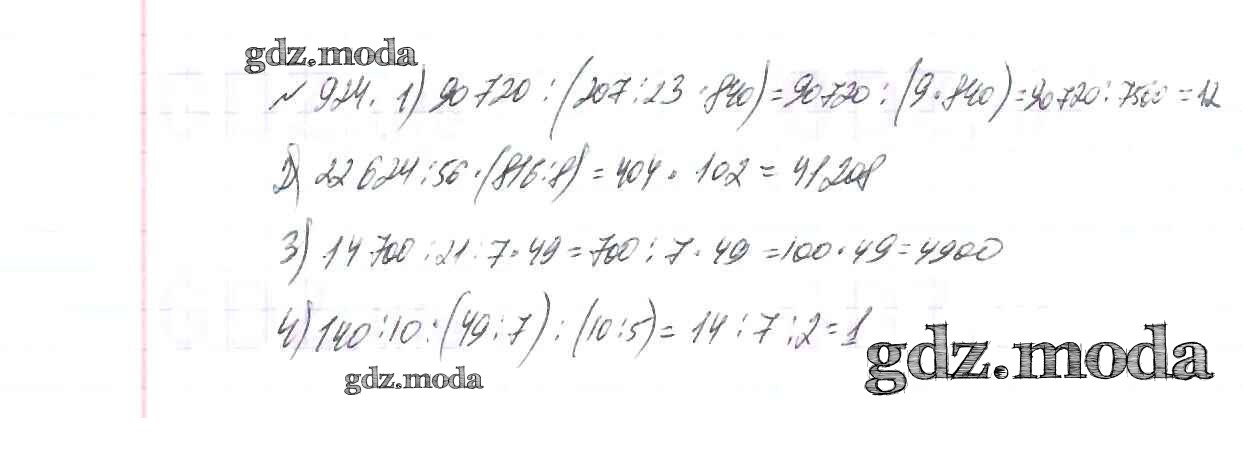 gdz.moda
№ 924. 1) 90720 : (207 : 23 · 840) = 90720 : (9 · 840) = 90720 : 7560 = 12
2) 22624 : 56 · (816 : 8) = 404 · 102 = 41208
3) 14700 : 21 : 7 · 49 = 700 : 7 · 49 = 100 · 49 = 4900
4) 140 : 10 : (49 : 7) : (10 : 5) = 14 : 7 : 2 = 1
gdz.moda
gdz.moda